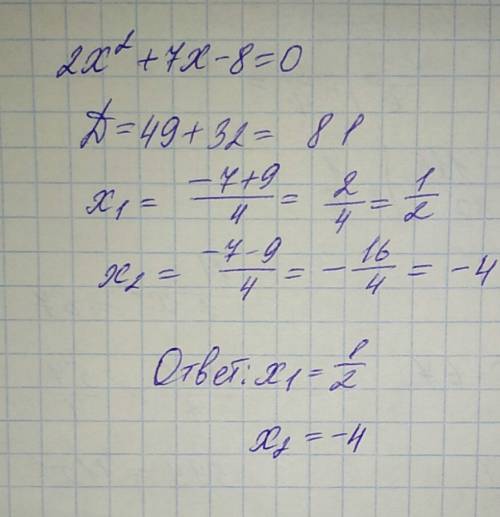 2x² + 7x - 8 = 0
Д = 49 + 32 = 81
x₁ = (-7+9)/4 = 2/4 = 1/2
x₂ = (-7-9)/4 = -16/4 = -4
Ответ: x₁ = 1/2
x₂ = -4